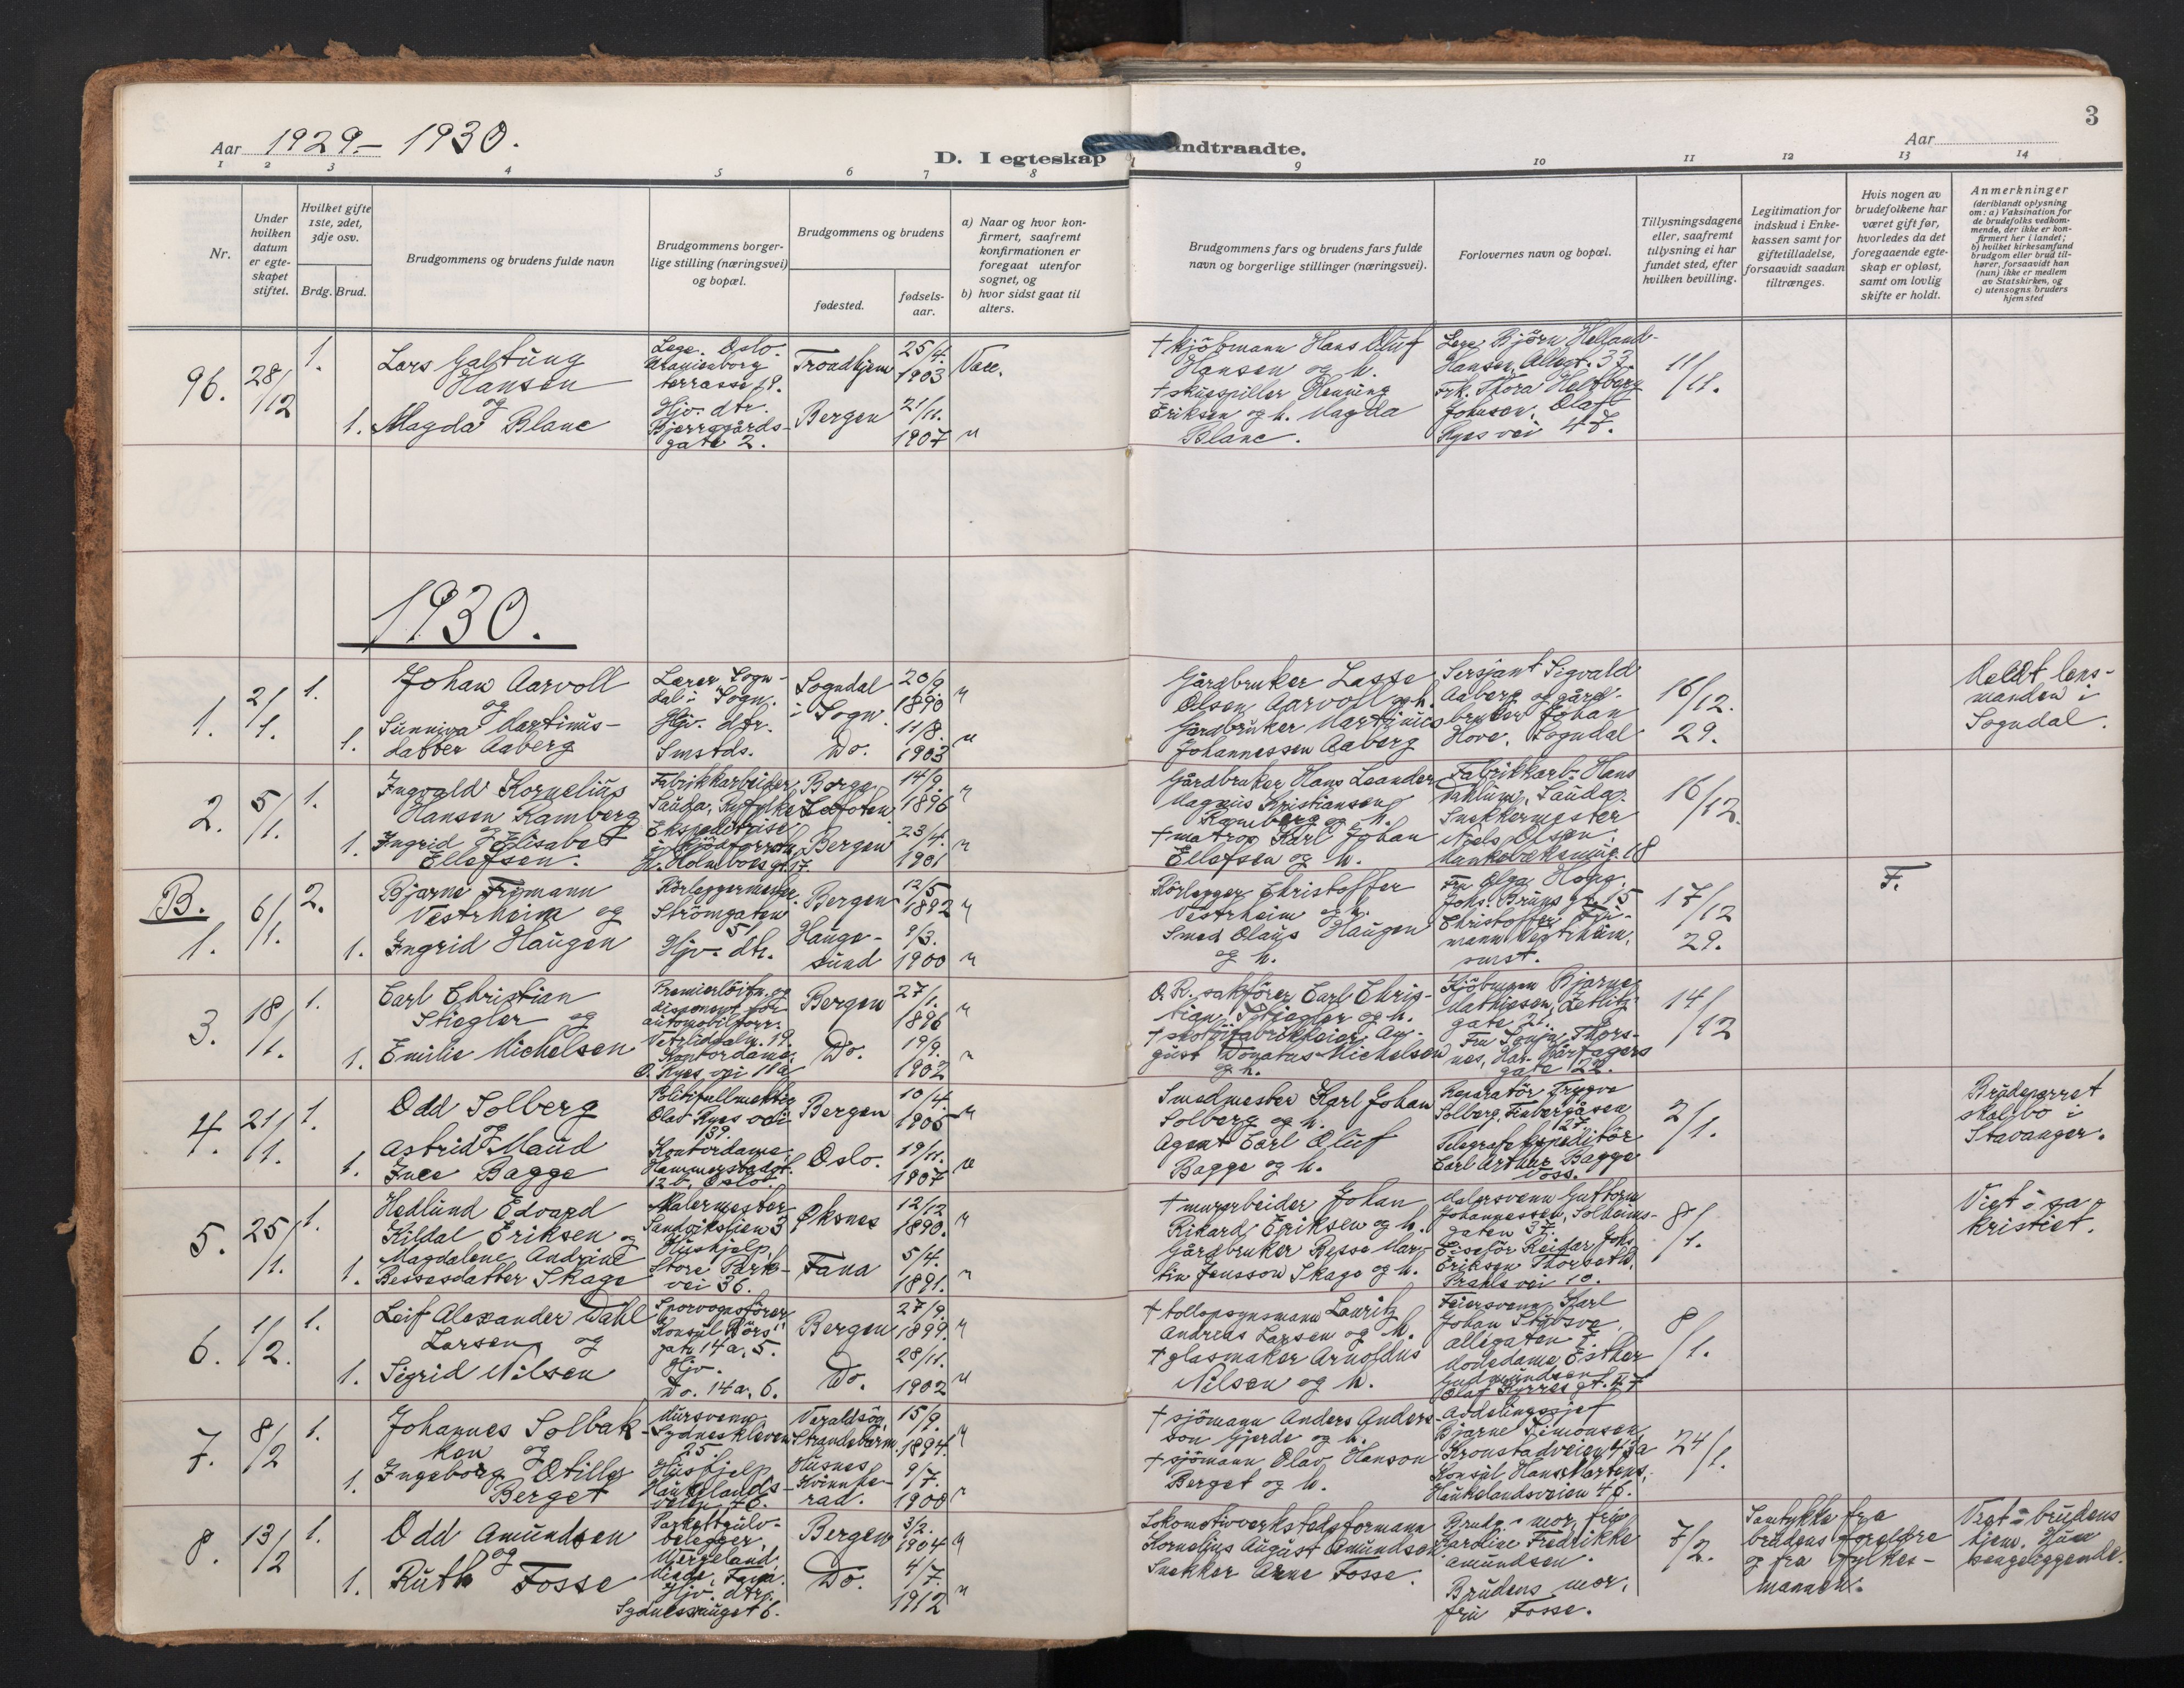 Aar 1929.- 1930.
D. I egteskap indtraadte.
Aar
3
1 2 3 4 5 6 7 8 9 10 11 12 13 14
Nr.
Under hvilken datum er egteskapet stiftet.
Hvilket gifte 1ste, 2det, 3dje osv.
Brdg. Brud.
Brudgommens og brudens fulde navn
Brudgommens borgerlige stilling (næringsvei) og bopæl.
Brudgommens og brudens
fødested.
fødselsaar.
a) Naar og hvor konfirmert, saafremt konfirmationen er foregaat utenfor sognet, og
b) hvor sidst gaat til alters.
Brudgommens fars og brudens fars fulde navn og borgerlige stillinger (næringsvei).
Forlovernes navn og bopæl.
Tillysningsdagene eller, saafremt tillysning ei har fundet sted, efter hvilken bevilling.
Legitimation for indskud i Enkekassen samt for giftetilladelse, forsaavidt saadan tiltrænges.
Hvis nogen av brudefolkene har været gift før, hvorledes da det foregaaende egteskap er opløst, samt om lovlig skifte er holdt.
Anmerkninger (deriblandt oplysning om: a) Vaksination for de brudefolks vedkommende, der ikke er konfirmert her i landet; b) hvilket kirkesamfund brudgom eller brud tilhører, forsaavidt han (hun) ikke er medlem av Statskirken, og c) utensogns bruders hjemsted
96. 28/12 1. Lars Galtung Hansen og
Lege. Oslo. Uranienborg terrasse 19. Trondhjem 25/4. 1903 Vacc.
1. Magda Blanc
Hjv. dtr. Bjerregårdsgate 2. Bergen 21/11. 1907 "
† kjöbmann Hans Oluf Hansen og h.
† skuespiller Henning Eriksen og h. Magda Blanc.
Lege Björn Helland-Hansen, Allégt. 33.
Frk. Thora Johnsen, Olaf Ryes vei 47.
11/12.
1930.
1. 2/1. 1. Johan Aarvoll og
Lærer Sogndal i Sogn. Sogndal i Sogn. 20/9 1890 "
1. Sunniva Martinusdatter Aaberg
Hjv. dtr. Smstds. Do. 11/8. 1903 "
Gårdbruker Lasse Olsen Aarvoll og h.
Gardbruker Martinus Johannessen Aaberg
Sersjant Sigvald Aaberg og gårdbruker Johan Hove, Sogndal
16/12. 29.
Meldt lensmanden i Sogndal.
2. 5/1. 1. Ingvald Kornelius Hansen Ramberg og
Fabrikkarbeider Sauda, Ryfylke Borge Lofoten 14/9. 1896 "
1. Ingrid Elisabet Ellefsen.
Ekspeditrise Bergen 23/4. 1901 "
Gårdbruker Hans Leander Magnus Kristiansen Ramberg og h.
† matros Karl Johan Ellefsen og h.
Fabrikkarb. Hans Dahlum, Sauda.
Snekkermester Niels Olsen.
16/12.
B. 1. 6/1. 2. Bjarne Frymann Vestrheim og
Rörleggermester. Strömgaten 51 Bergen 12/5 1892 "
1. Ingrid Haugen
Hjv. dtr. Haugesund 9/3. 1900 "
Rörlegger Christoffer Vestrheim og h.
Smed Olaus Haugen og h.
Fru Olga Houg. Johs. Bruns gt. 15
17/12 29.
F.
3. 18/1. 1. Carl Christian Stiegler og
Premierlöitn. og disponent for automobilforr. Bergen 27/1. 1896 "
1. Emilie Michelsen
Kontordame, O. Ryes vei 11a Do. 19/9. 1902 "
O. R. sakförer Carl Christian Stiegler og h.
† skotöifabrikkeier August Donatus Michelsen og h.
Kjöbmann Bjarne Mathiesen, Zetlitzgate 2.
Fru Signe Thorsnes, Har. Hårfagers gate 22.
14/12
4. 21/1. 1. Odd Solberg
Politifullmektig Olav Ryes vei 139. Bergen 10/4. 1905 "
1. Astrid Maud Inee Bagge
Kontordame, Hammerstadgt. 12b, Oslo. Oslo. 19/11. 1907 "
Smedmester Karl Johan Solberg og h.
Agent Carl Oluf Bagge og h.
Reparatör Trygve Solberg,
Telegrafekspeditör Carl Arthur Bagge Voss.
2/1.
Brudeparret skal bo i Stavanger.
5. 25/1. 1. Hedlund Edvard Kildal Eriksen og
Malermester Sandvikslien 3 Øksnes 12/12 1890. "
1. Magdalene Andrine Bessesdatter Skage
Hushjelp, Store Parkvei 36. Fana 5/4. 1891. "
† murarbeider Johan Rikard Eriksen og h.
Gårdbruker Besse Martin Jensson Skage og h.
Malersvenn Guttorm Johannessen, Solheimsgaten 37.
Ciselör Reidar Johs. Eriksen Thorseth, Prahls vei 10.
8/1.
Viet i sakristiet.
6. 1/2. 1. Leif Alexander Dahl Larsen og
Sporvognsförer Konsul Börs gate 14a, 5. Bergen 27/9. 1899. "
1. Sigrid Nilsen
Hjv. Do. 14a. 6. Do. 28/11. 1902 "
† tollopsynsmann Lauritz Andreas Larsen og h.
† glasmaker Arnoldus Nilsen og h.
Feiersvenn Karl Johan Stubsve, Allégaten 7
Motedame Esther Gudmundsen Olaf Kyrres gt. 47
8/1.
7. 8/2 1. Johannes Solbakken og
Mursvenn Sydneskleven 25 Strandebarm. 15/9. 1894. "
1. Ingeborg Otilles Berget
Hushjelp Haukelandsveien 46. Husnes, Kvinnherad. 9/7. 1900 "
† sjömann Anders Anderson Gjerde og h.
† sjömann Olav Hanson Berget og h.
Avdelingssjef Bjarne Simonsen, Kronstadveien 43a
Konsul Hans Martens, Haukelandsveien 46.
24/1.
8. 13/2 1. Odd Amundsen og
Parkettgulvbelegger, Bergen 3/2. 1904 "
1. Ruth Fosse
Hjv. dtr. Sydnessmuget 6. Do. 4/7. 1912 "
Lokomotivverkstedsformann Kornelius August Amundsen.
Snekker Arne Fosse.
Brudg.s mor, fru Karoline Fredrikke Amundsen.
Brudens mor, fru Fosse.
7/2.
Samtykke fra brudens foreldre og fra fylkesmannen.
Viet i brudens hjem. Hun sengeliggende.